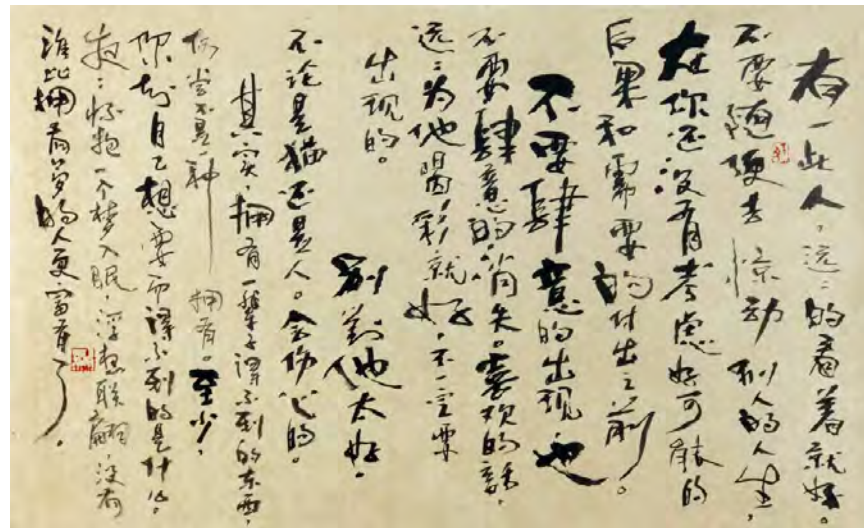 有一些人，远远的看着就好。
不要随便去惊动别人的人生，
在你还没有考虑好可能的
后果和需要的付出之前。
不要肆意的出现也
不要肆意的消失。喜欢的话，
远远为他喝彩就好，不一定要
出现的。
别對他太好。
不论是猫还是人。会伤心的。
其实，拥有一辈子得不到的东西，
何尝不是一种拥有。至少，
你知自己想要而得不到的是什么。
夜夜怀抱一个梦入眠，浮想联翩，没有
谁比拥有梦的人更富有了。